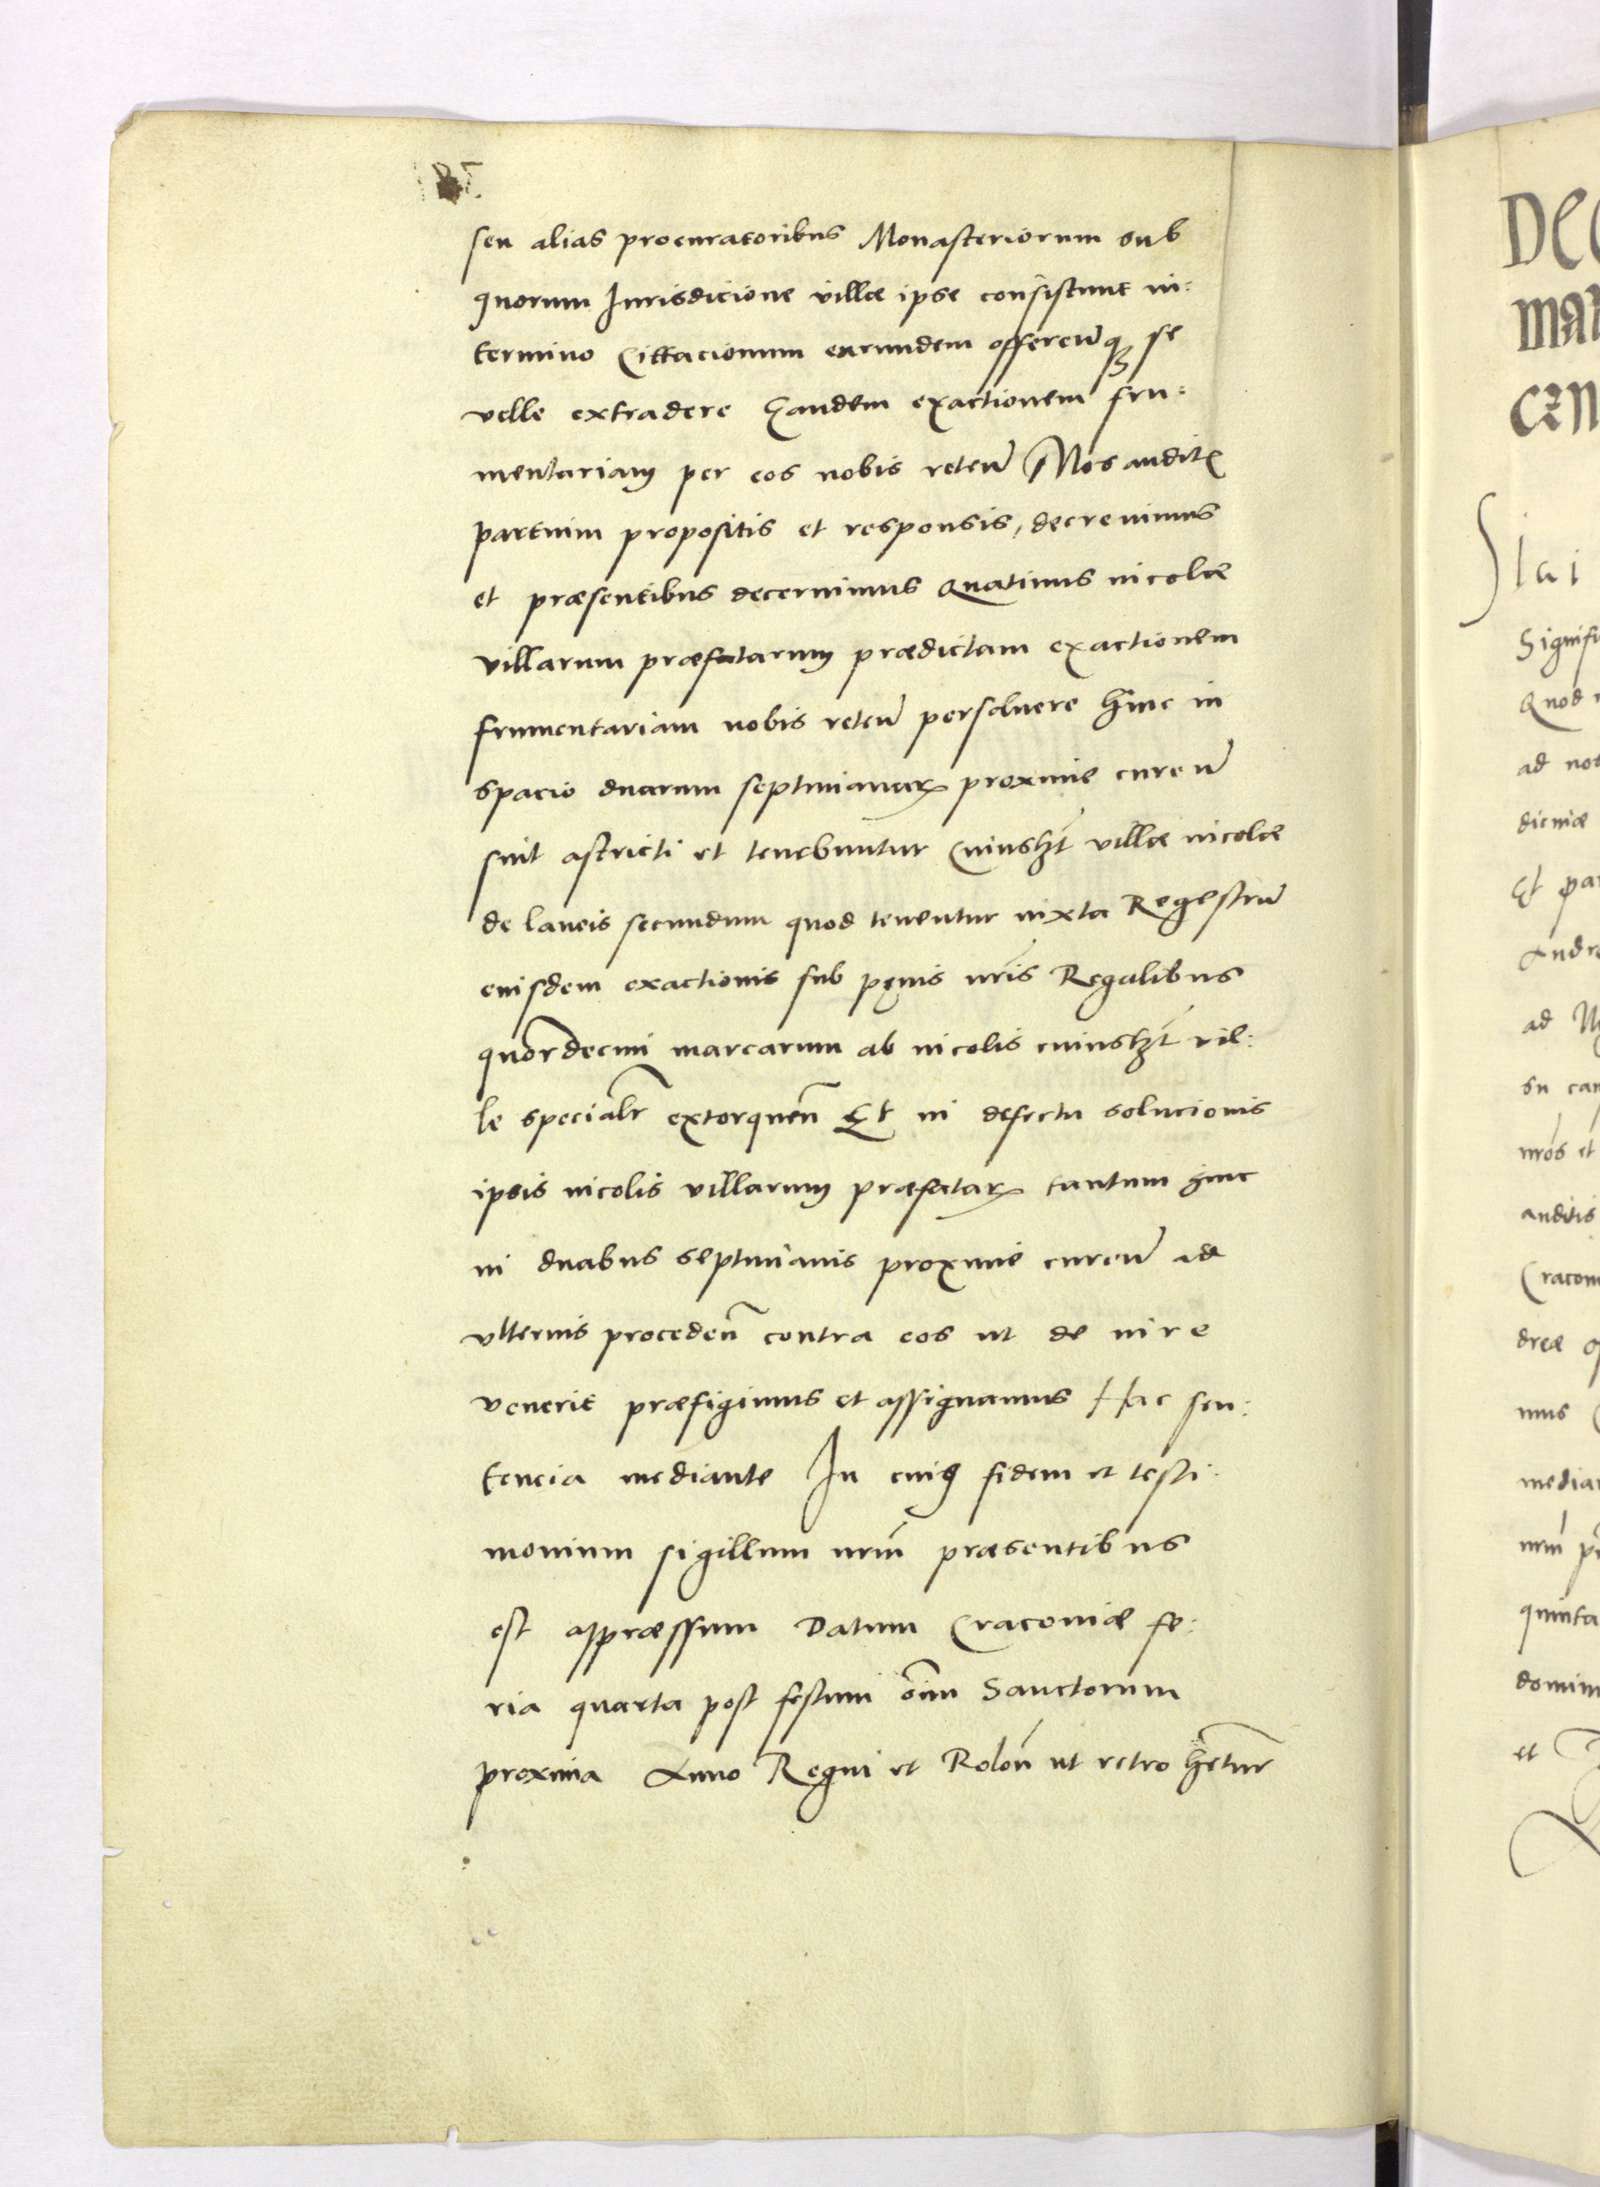 seu alias procuratoribus Monasteriorum sub
quorum Jurisdicione villæ ipse consistunt in:
termino Cittacionum earundem offerentq se
velle extradere Eandem exactionem fru:
mentariam per eos nobis reten Nos auditis
partium propositis et responsis, decrevimus
et præsentibus decernimus Quatinus incolæ
villarum præfatarum prædictam exactionem
frumentariam nobis reten persolvere hinc in
spacio duarum septimanarum proxime curen
sint astricti et tenebuntur Cuiuslzt villæ incolæ
de laneis secundum quod tenentur iuxta Regestrum
eiusdem exactionis sub pęnis nris Regalibus
quordecim marcarum ab incolis cuiuslzt vil:
le specialr extorquen Et in defectu solucionis
ipsis incolis villarum præfatar tantum hinc
in duabus septimanis proxime curen ad
ulterius proceden contra eos ut de iure
venerit præfigimus et assignamus Hac sen:
tencia mediante In cuius fidem et testi:
monium sigillum nrm præsentibus
est appræssum Datum Cracoviæ fe:
ria quarta post festum oim Sanctorum
proxima Anno Regni et Polon ut retro hetur
DEC
MAN
Signifi
Quod
ad nos
diciniæ
Et par
Andre
ad
su cam
nros et
auditis
Cracovi
dreæ
mus
median
nrm
quinta
domini
et